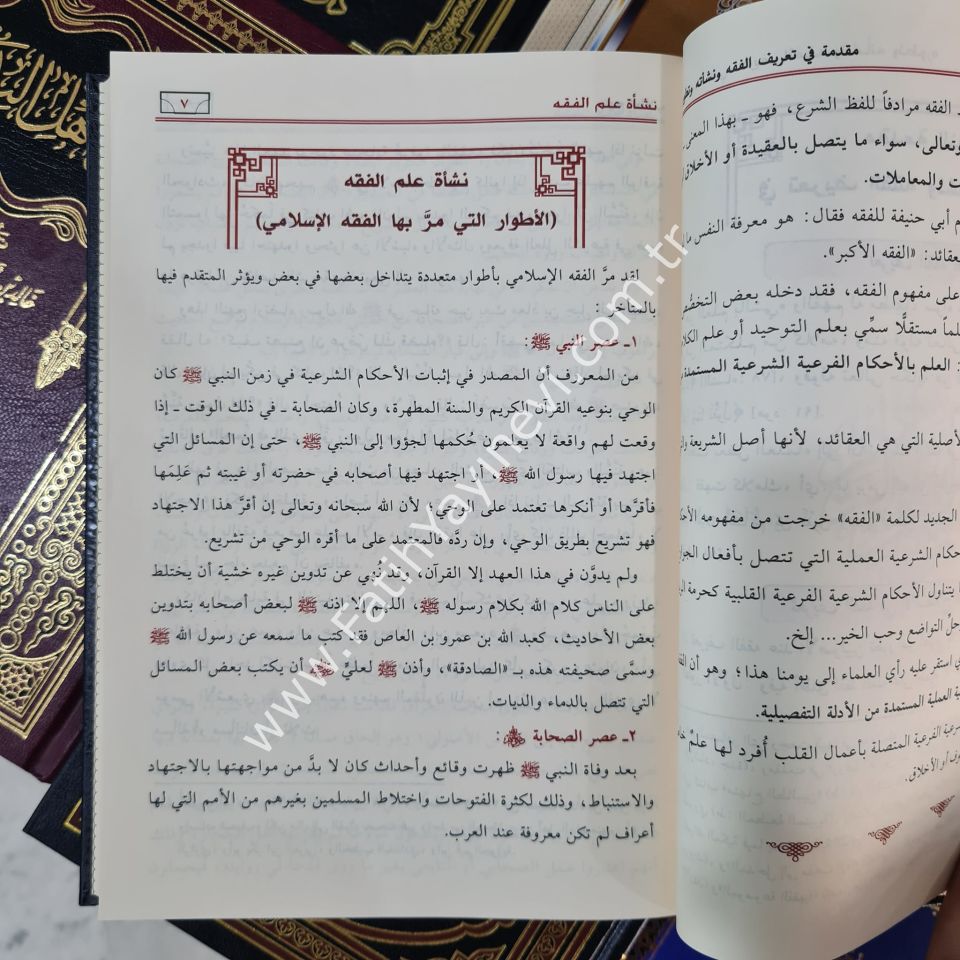 مقدمة في تعريف الفقه ونشأته
الفقه مرادفاً للفظ الشرع، فهو ـ بهذا المعنى
وتعالى، سواء ما يتصل بالعقيدة أو الأخلاق
والمعاملات.
أبي حنيفة للفقه فقال: هو معرفة النفس
«الفقه الأكبر».
على مفهوم الفقه، فقد دخله بعض
مستقلًّا سمِّي بعلم التوحيد أو علم
العلم بالأحكام الفرعية الشرعية المستمدة
التي هي العقائد، لأنها أصل الشريعة
الجديد لكلمة «الفقه» خرجت من مفهومه
الشرعية العملية التي تتصل بأفعال
يتناول الأحكام الشرعية الفرعية القلبية كحرمة
التواضع وحب الخير... إلخ.
استقر عليه رأي العلماء إلى يومنا هذا؛ وهو أن
العملية المستمدة من الأدلة التفصيلية.
الفرعية المتصلة بأعمال القلب أُفرد لها علمٌ
أو الأخلاق.
نشأة علم الفقه
٧
نشأة علم الفقه
(الأطوار التي مرَّ بها الفقه الإسلامي)
لقد مرَّ الفقه الإسلامي بأطوار متعددة يتداخل بعضها في بعض ويؤثر المتقدم فيها
بالمتأخر :
١ـ عصر النبي ﷺ :
من المعروف أن المصدر في إثبات الأحكام الشرعية في زمن النبي ﷺ كان
الوحي بنوعيه القرآن الكريم والسنة المطهرة، وكان الصحابة ـ في ذلك الوقت ـ إذا
وقعت لهم واقعة لا يعلمون حُكمها لجؤوا إلى النبي ﷺ، حتى إن المسائل التي
اجتهد فيها رسول الله ﷺ، أو اجتهد فيها أصحابه في حضرته أو غيبته ثم عَلِمَها
فأقرَّها أو أنكرها تعتمد على الوحي؛ لأن الله سبحانه وتعالى إن أقرَّ هذا الاجتهاد
فهو تشريع بطريق الوحي، وإن ردَّه فالمعتمد على ما أقره الوحي من تشريع.
ولم يدوَّن في هذا العهد إلا القرآن، وقد نُهي عن تدوين غيره خشية أن يختلط
على الناس كلام الله بكلام رسوله ﷺ، اللهم إلا إذنه ﷺ لبعض أصحابه بتدوين
بعض الأحاديث، كعبد الله بن عمرو بن العاص فقد كتب ما سمعه عن رسول الله ﷺ
وسمَّى صحيفته هذه بـ «الصادقة»، وأذن ﷺ لعليٍّ أن يكتب بعض المسائل
التي تتصل بالدماء والديات.
٢ـ عصر الصحابة :
بعد وفاة النبي ﷺ ظهرت وقائع وأحداث كان لا بدَّ من مواجهتها بالاجتهاد
والاستنباط، وذلك لكثرة الفتوحات واختلاط المسلمين بغيرهم من الأمم التي لها
أعراف لم تكن معروفة عند العرب.
www.Fatihyayinevi.com.tr